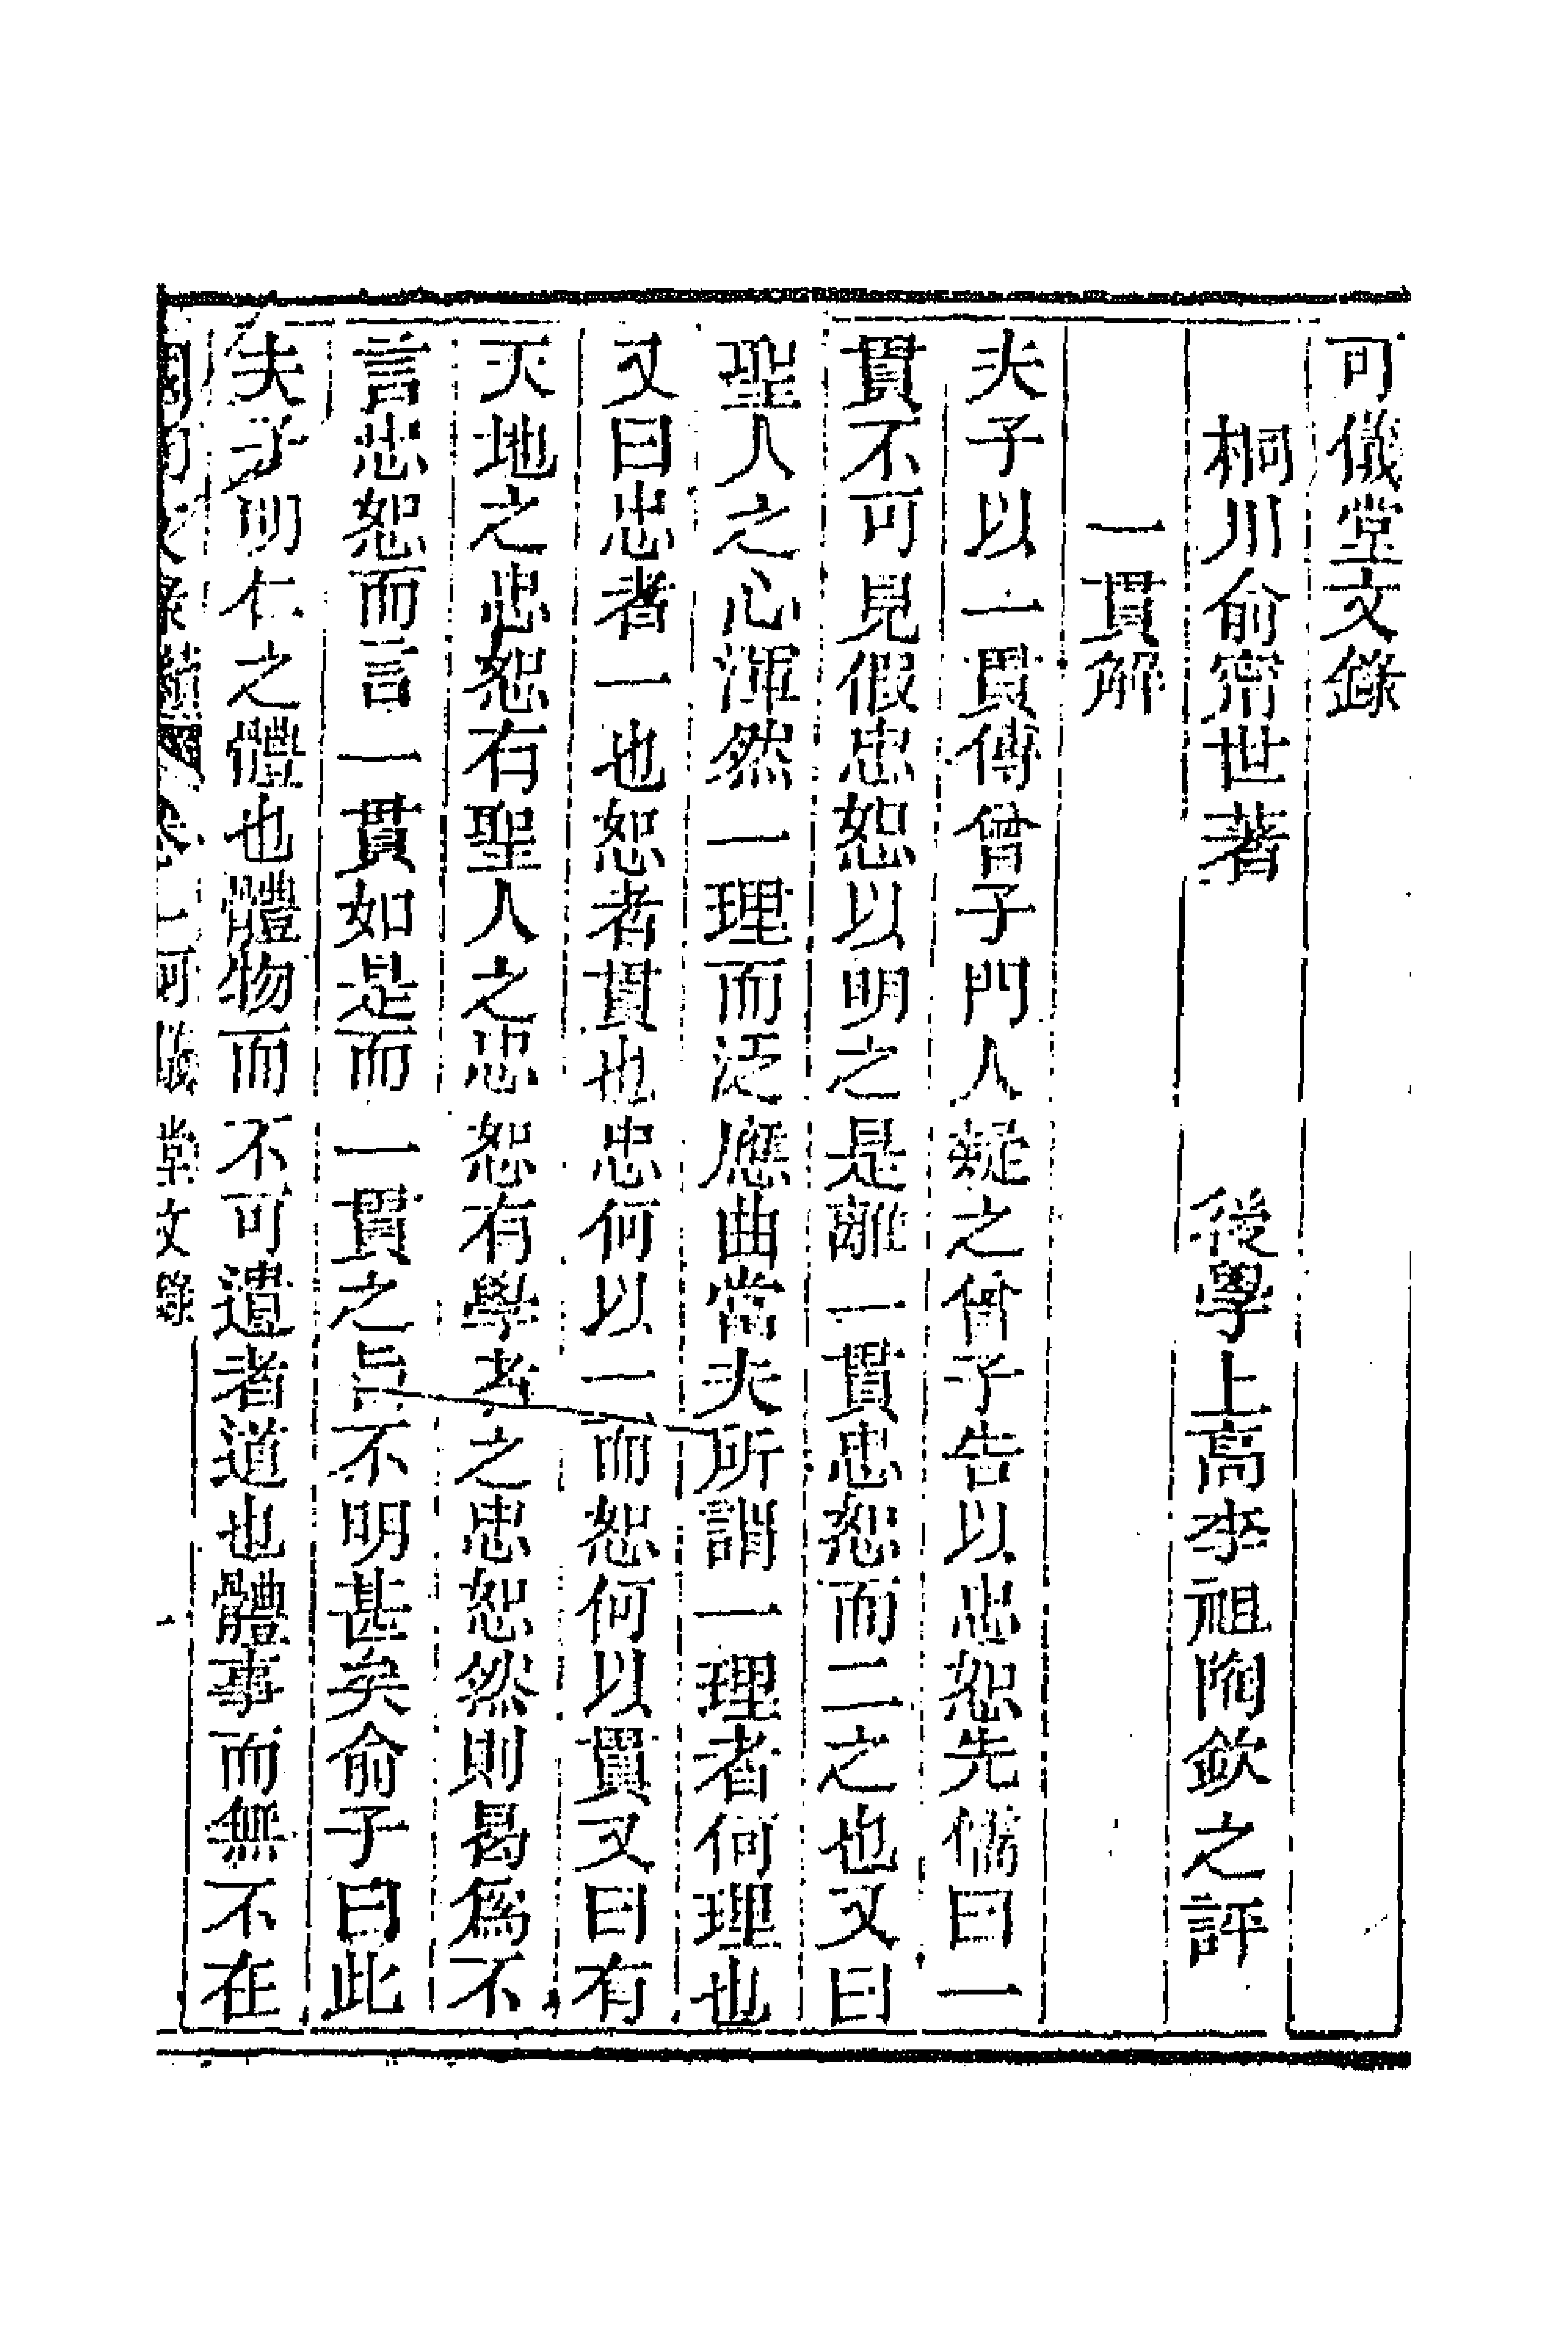 可儀堂文錄
桐川俞甯世著　後學上高李祖陶欽之評
一貫解
夫子以一貫傳曾子門人疑之曾子告以忠恕先儒曰一
貫不可見假忠恕以明之是離一貫忠恕而二之也又曰
聖人之心渾然一理而泛應曲當夫所謂一理者何理也
又曰忠者一也恕者貫也忠何以一而恕何以貫又曰有
天地之忠恕有聖人之忠恕有學者之忠恕然則曷爲不
言忠恕而言一貫如是而一貫之旨不明甚矣俞子曰此
夫子明仁之體也體物而不可遺者道也體事而無不在
國朝文錄續編　卷一可儀堂文錄　一